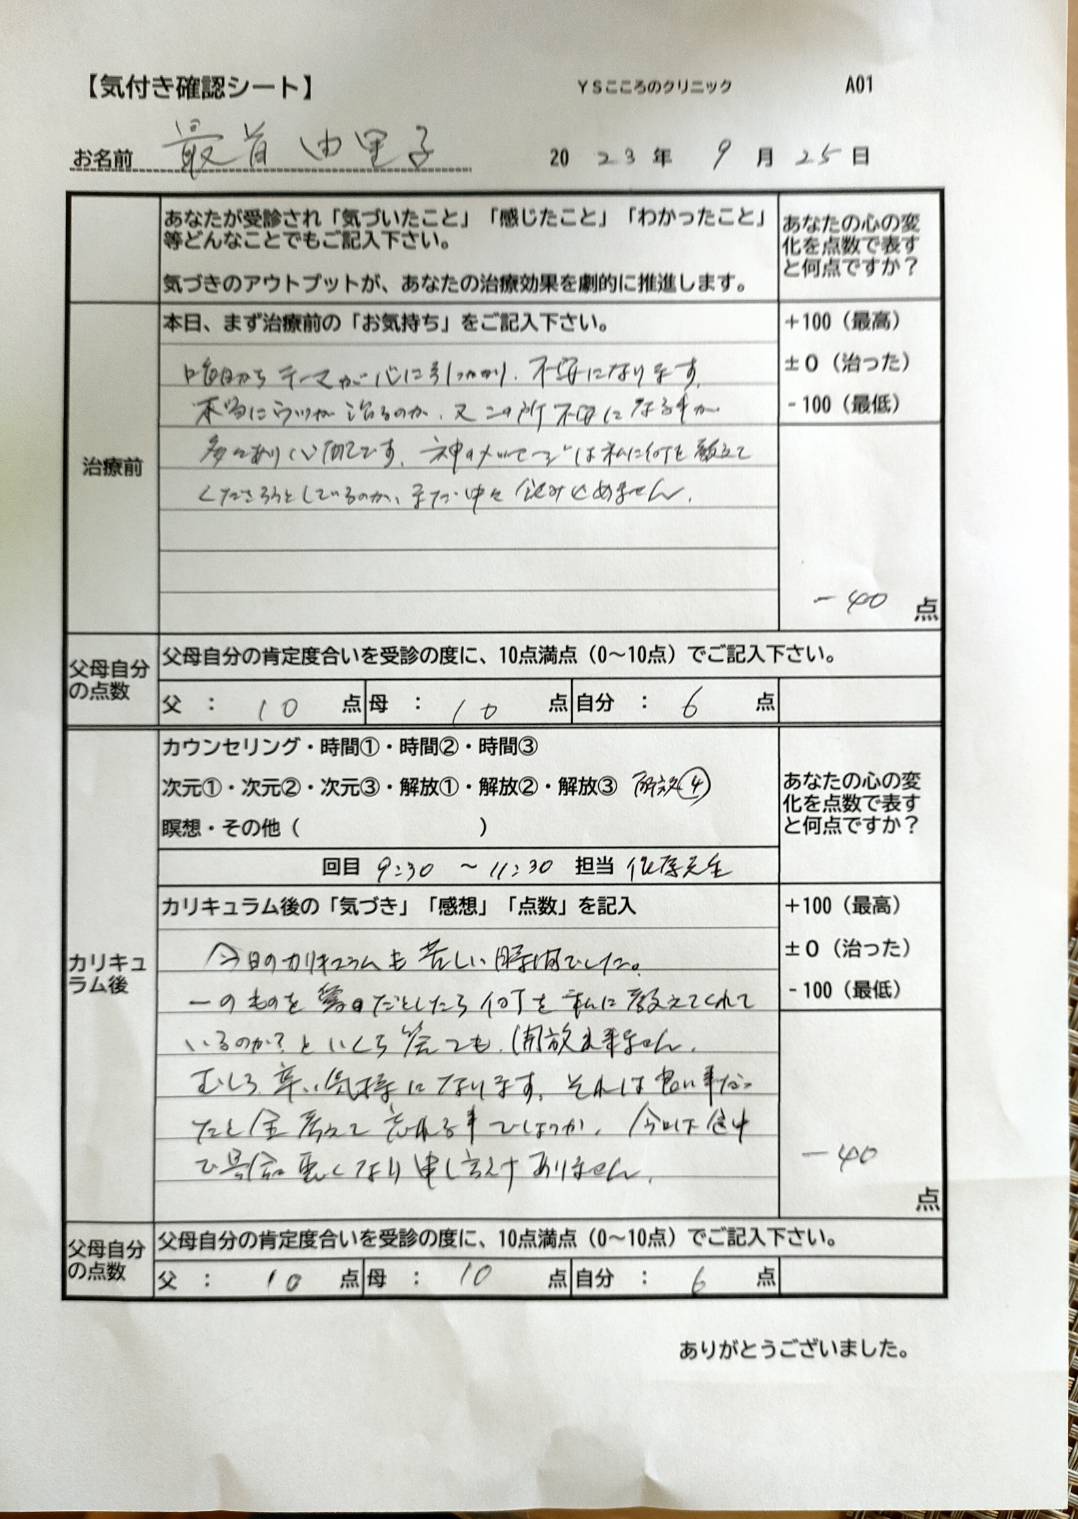 【気付き確認シート】 YSこころのクリニック A01
お名前 最首由里子 2023年 9月25日
あなたが受診され「気づいたこと」「感じたこと」「わかったこと」
等どんなことでもご記入下さい。
気づきのアウトプットが、あなたの治療効果を劇的に推進します。
あなたの心の変
化を点数で表す
と何点ですか?
治療前
本日、まず治療前の「お気持ち」をご記入下さい。
昨日からテーマが心に引っかかり、不安になります。
本当にうつが治るのか、又この所不安になる事が
多々あり心配です。神のメッセージは私に何を教えて
くださろうとしているのか、まだ中々飲み込めません。
+100(最高)
±0(治った)
-100(最低)
-40 点
父母自分
の点数
父母自分の肯定度合いを受診の度に、10点満点(0~10点)でご記入下さい。
父 : 10 点 母 : 10 点 自分 : 6 点
カリキュ
ラム後
カウンセリング・時間①・時間②・時間③
次元①・次元②・次元③・解放①・解放②・解放③ 解放④
瞑想・その他( )
回目 9:30 ~ 11:30 担当 先生
あなたの心の変
化を点数で表す
と何点ですか?
カリキュラム後の「気づき」「感想」「点数」を記入
今日のカリキュラムも苦しい時間でした。
一のものを だとしたら何を私に教えてくれて
いるのか?といくら答ても、開放出来ません。
むしろ辛い気持になります。それは良い事だっ
たと全考えて忘れる事でしょうか。今日は途中
で具合悪くなり申し訳ありません。
+100(最高)
±0(治った)
-100(最低)
-40
点
父母自分
の点数
父母自分の肯定度合いを受診の度に、10点満点(0~10点)でご記入下さい。
父 : 10 点 母 : 10 点 自分 : 6 点
ありがとうございました。